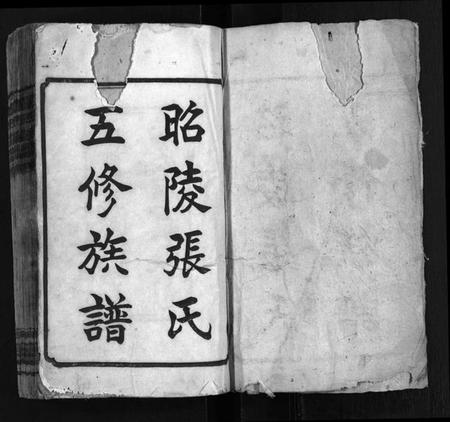 昭陵張氏
五修族譜